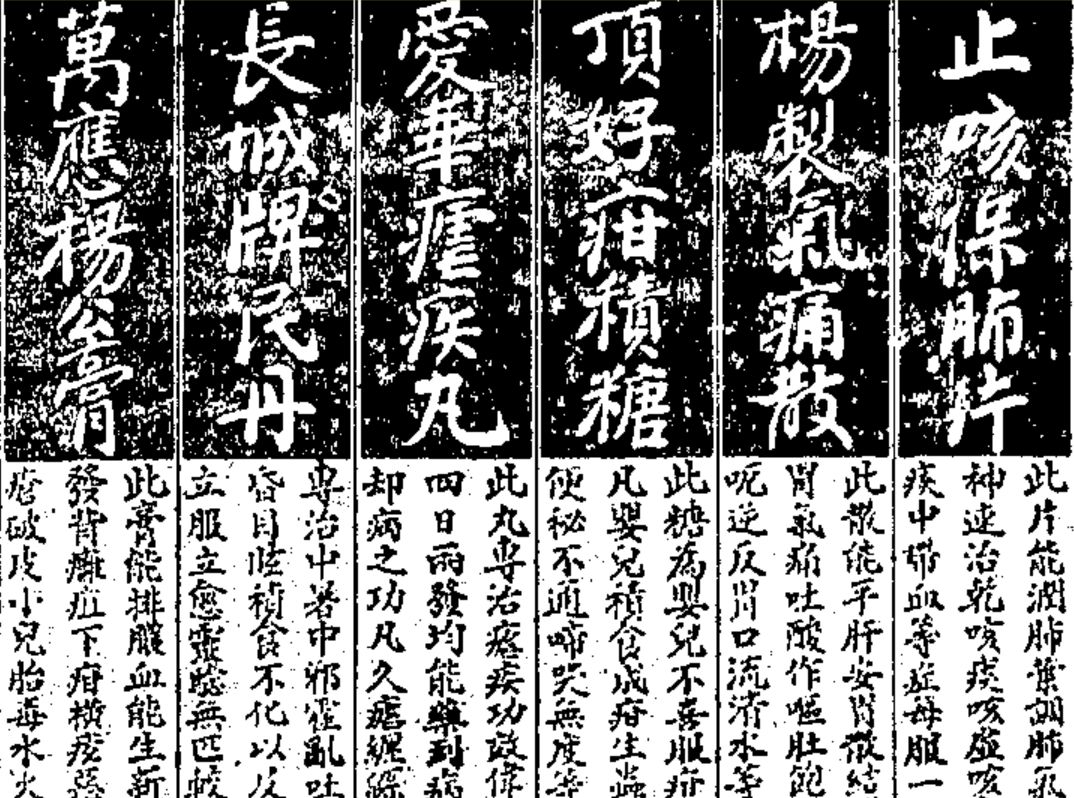 止咳保肺片
此片能潤肺葉調肺氣
神速治乾咳痰咳虛咳
痰中帶血等症每服一
楊製氣痛散
此散能平肝安胃散結
胃氣痛吐酸作嘔肚飽
呃逆反胃口流清水等
頂好疳積糖
此糖為嬰兒不喜服疳
凡嬰兒積食成疳生蟲
便秘不通啼哭無度等
愛華瘧疾丸
此丸專治瘧疾功效偉
四日兩發均能藥到病
却病之功凡久瘧纏綿
長城牌民丹
專治中暑中邪霍亂吐
昏目眩積食不化以及
立服立愈靈驗無匹較
萬應楊公膏
此膏能排膿血能生新
發背癰疽下疳橫痃惡
瘡破皮小兒胎毒水火